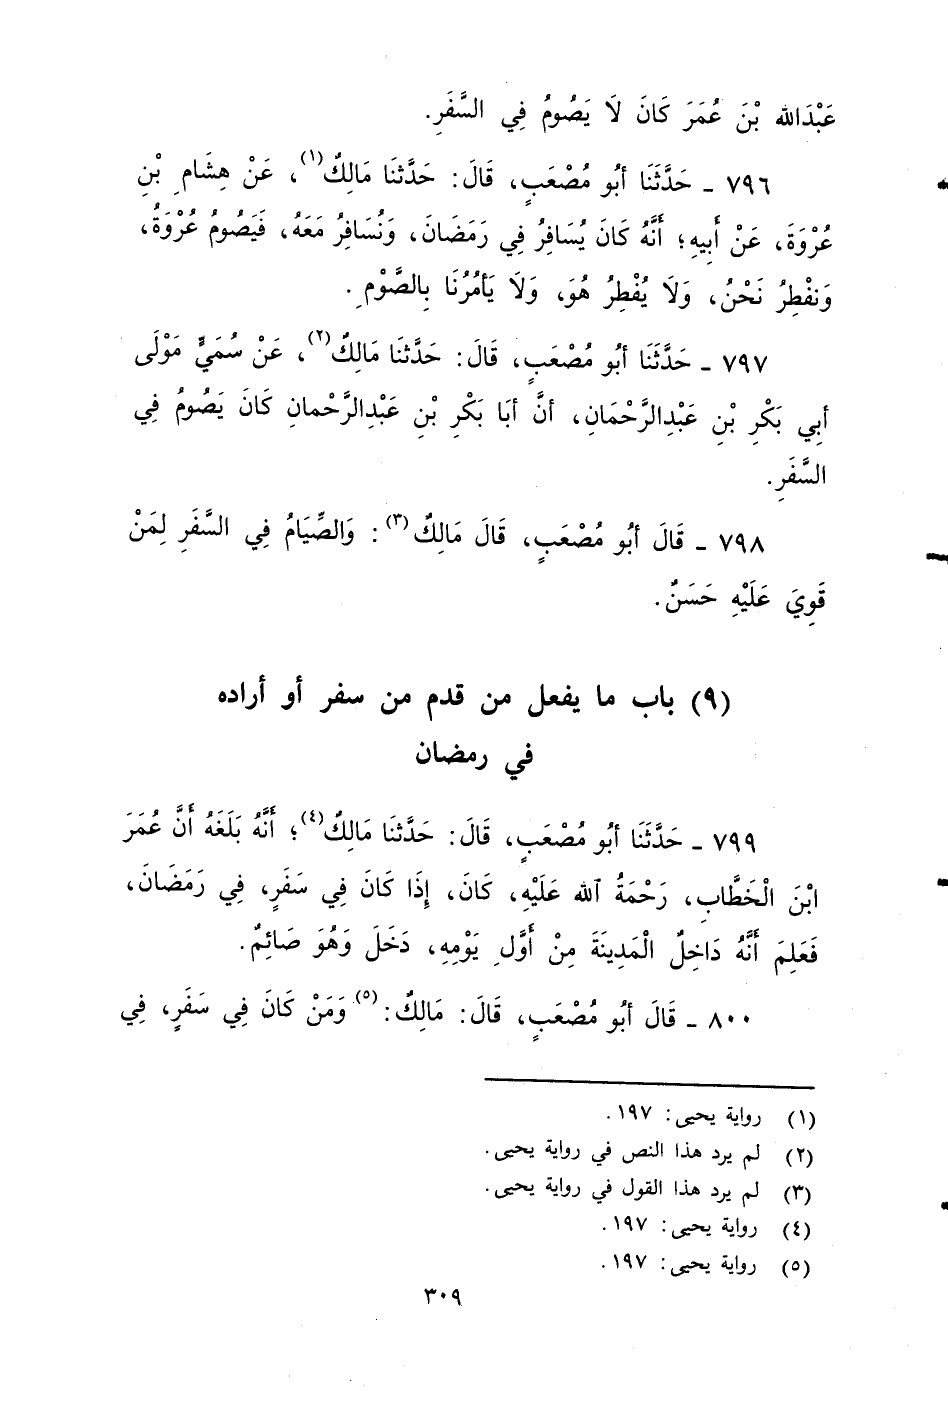 عَبْدَالله بْنَ عُمَرَ كَانَ لَا يَصُومُ فِي السَّفَرِ.
٧٩٦ ـ حَدَّثَنَا أبُو مُصْعَبٍ، قَالَ: حَدَّثنَا مَالِكٌ(١)، عَنْ هِشَامِ بْنِ
عُرْوَةَ، عَنْ أَبِيهِ؛ أنَّهُ كَانَ يُسَافِرُ فِي رَمَضَانَ، وَنُسَافِرُ مَعَهُ، فَيَصُومُ عُرْوَةُ،
وَنفْطِرُ نَحْنُ، وَلَا يُفْطِرُ هُوَ، وَلَا يَأمُرُنَا بِالصَّوْمِ.
٧٩٧ ـ حَدَّثَنَا أبُو مُصْعَبٍ، قَالَ: حَدَّثنَا مَالِكٌ(٢)، عَنْ سُمَيٍّ مَوْلَى
أبِي بَكْرِ بْنِ عَبْدِالرَّحْمَانِ، أنَّ أبَا بَكْرِ بْنِ عَبْدِالرَّحْمانِ كَانَ يَصُومُ فِي
السَّفَرِ.
٧٩٨ ـ قَالَ أبُو مُصْعَبٍ، قَالَ مَالِكٌ(٣): وَالصِّيَامُ فِي السَّفَرِ لِمَنْ
قَوِيَ عَلَيْهِ حَسَنٌ.
(٩) باب ما يفعل من قدم من سفر أو أراده
في رمضان
٧٩٩ ـ حَدَّثَنَا أبُو مُصْعَبٍ، قَالَ: حَدَّثنَا مَالِكٌ(٤)؛ أَنَّهُ بَلَغَهُ أَنَّ عُمَرَ
ابْنَ الْخَطَّابِ، رَحْمَةُ ٱلله عَلَيْهِ، كَانَ، إِذَا كَانَ فِي سَفَرٍ، فِي رَمَضَانَ،
فَعَلِمَ أَنَّهُ دَاخِلٌ الْمَدِينَةَ مِنْ أَوَّلِ يَوْمِهِ، دَخَلَ وَهُوَ صَائِمٌ.
٨٠٠ ـ قَالَ أبُو مُصْعَبٍ، قَالَ: مَالِكٌ:(٥) وَمَنْ كَانَ فِي سَفَرٍ، فِي
(١) رواية يحيى: ١٩٧.
(٢) لم يرد هذا النص في رواية يحيى.
(٣) لم يرد هذا القول في رواية يحيى.
(٤) رواية يحيى: ١٩٧.
(٥) رواية يحيى: ١٩٧.
٣٠٩